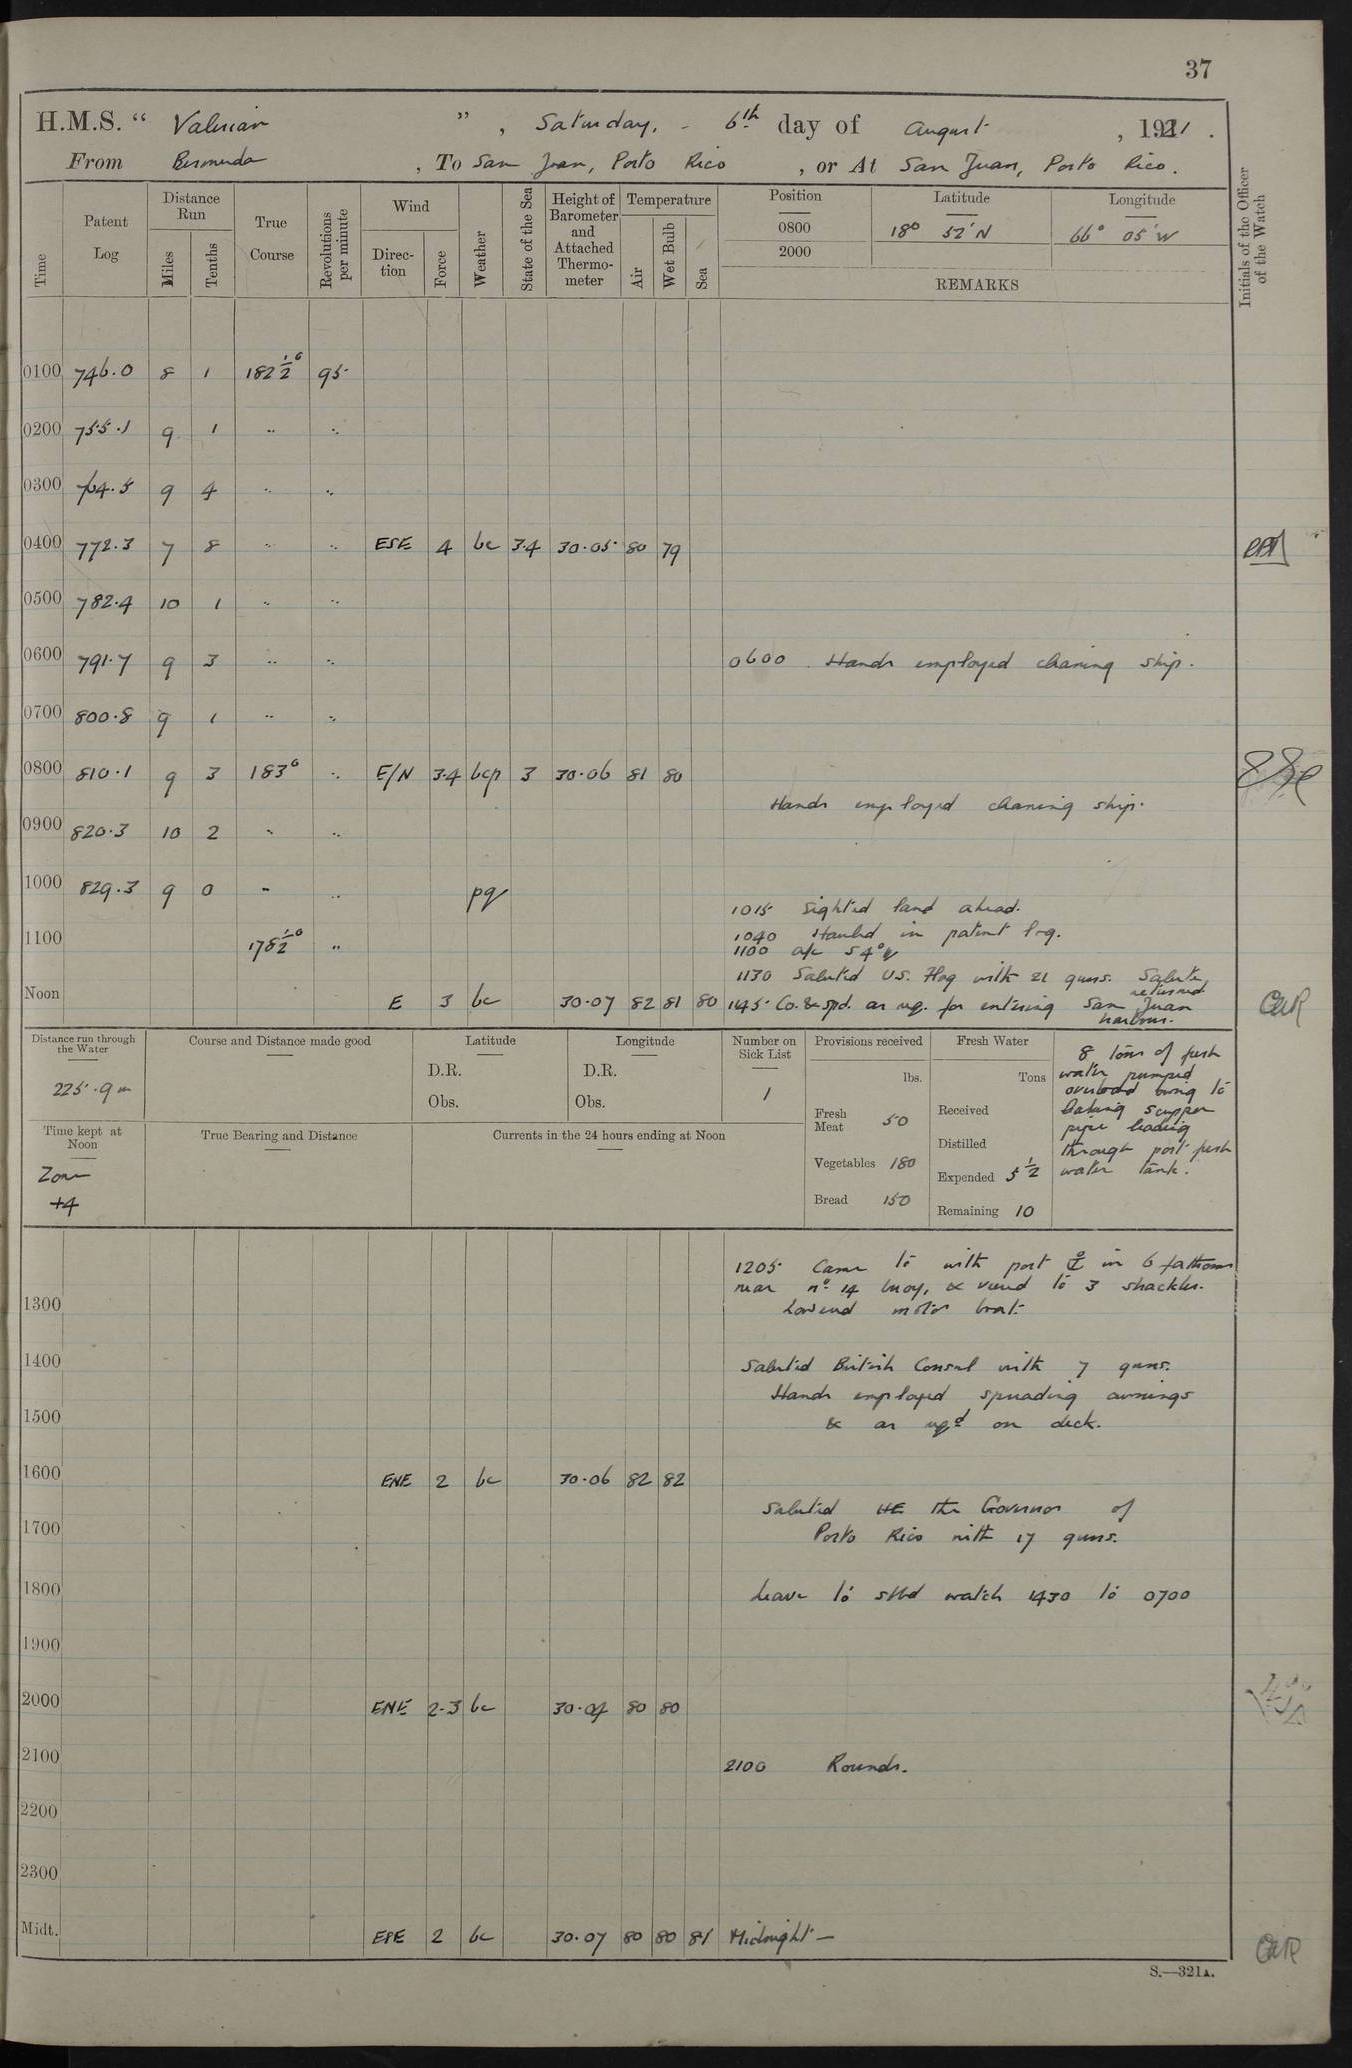 37
H.M.S. “ Valerian ” , Saturday, - 6th day of August , 1921 .
From Bermuda , To San Juan, Porto Rico , or At San Juan, Porto Rico.
Time Patent Log Distance Run Miles Tenths True Course Revolutions per minute Wind Direction Force Weather State of the Sea Height of Barometer and Attached Thermometer Temperature Air Wet Bulb Sea Position Latitude Longitude
0800 18° 52' N 66° 05' W
2000
REMARKS
Initials of the Officer of the Watch
0100 746.0 8 1 182 1/2° 95
0200 755.1 9 1 " "
0300 764.5 9 4 " "
0400 772.3 7 8 " " ESE 4 bc 3.4 30.05 80 79
0500 782.4 10 1 " "
0600 791.7 9 3 " " 0600 Hands employed cleaning ship.
0700 800.8 9 1 " "
0800 810.1 9 3 183° " E/N 3.4 bcp 3 30.06 81 80
Hands employed cleaning ship.
0900 820.3 10 2 " "
1000 829.3 9 0 " " pq
1015 Sighted land ahead.
1040 Hauled in patent log.
1100 178 1/2° " 1100 a/c S 4° W
1130 Saluted U.S. Flag with 21 guns. Salute returned
Noon E 3 bc 30.07 82 81 80 1145 Co. & spd. as req. for entering San Juan
harbour.
Distance run through the Water
225.9 m
Course and Distance made good
Latitude
D.R.
Obs.
Longitude
D.R.
Obs.
Number on Sick List
1
Provisions received
lbs.
Fresh Meat 50
Vegetables 180
Bread 150
Fresh Water
Tons
Received
Distilled
Expended 5 1/2
Remaining 10
8 tons of fresh
water pumped
overboard owing to
leaking scupper
pipe leading
through port fresh
water tank.
Time kept at Noon
Zone
+4
True Bearing and Distance
Currents in the 24 hours ending at Noon
1205 Came to with port ⚓ in 6 fathoms
near No. 14 buoy, & veered to 3 shackles.
1300 Lowered motor boat.
1400 Saluted British Consul with 7 guns.
Hands employed spreading awnings
1500 & as reqd on deck.
1600 ENE 2 bc 30.06 82 82
Saluted HE the Governor of
1700 Porto Rico with 17 guns.
1800 Leave to stbd watch 1430 to 0700
1900
2000 ENE 2-3 bc 30.07 80 80
2100 2100 Rounds.
2200
2300
Midt. ESE 2 bc 30.07 80 80 81 Midnight —
S.—321A.